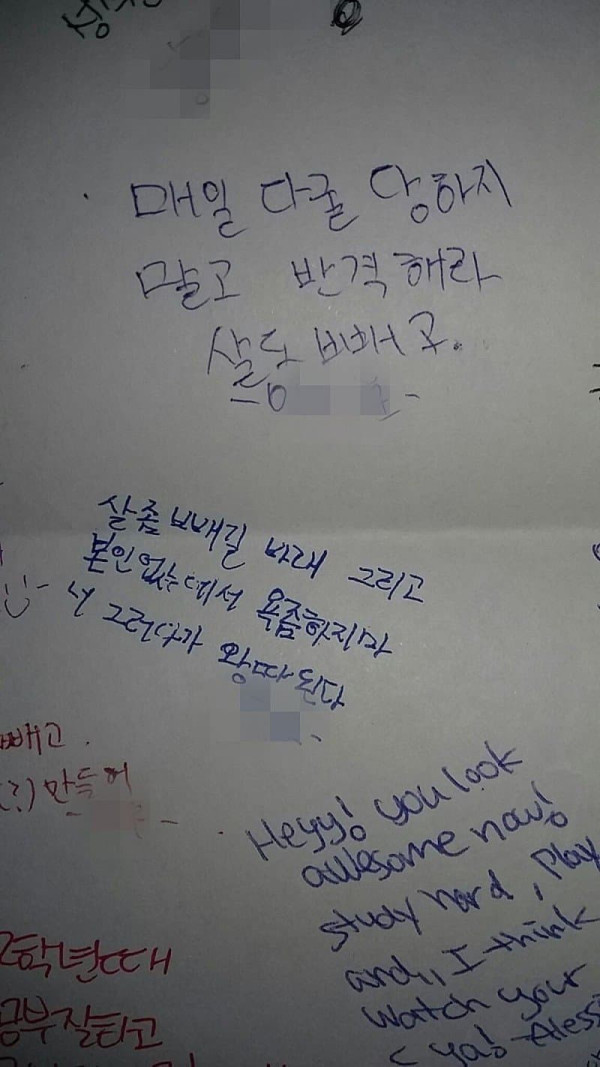 매일 다굴 당하지
말고 반격해라
살도 빼구.
살좀 빼길 바래 그리고
본인없는데서 욕좀하지마
너 그러다가 왕따된다
빼고.
(?) 만들어
Heyy! you look
awesome now!
study hard, Play
and, I think
Watch your
ya! Aless
2학년때
공부잘하고